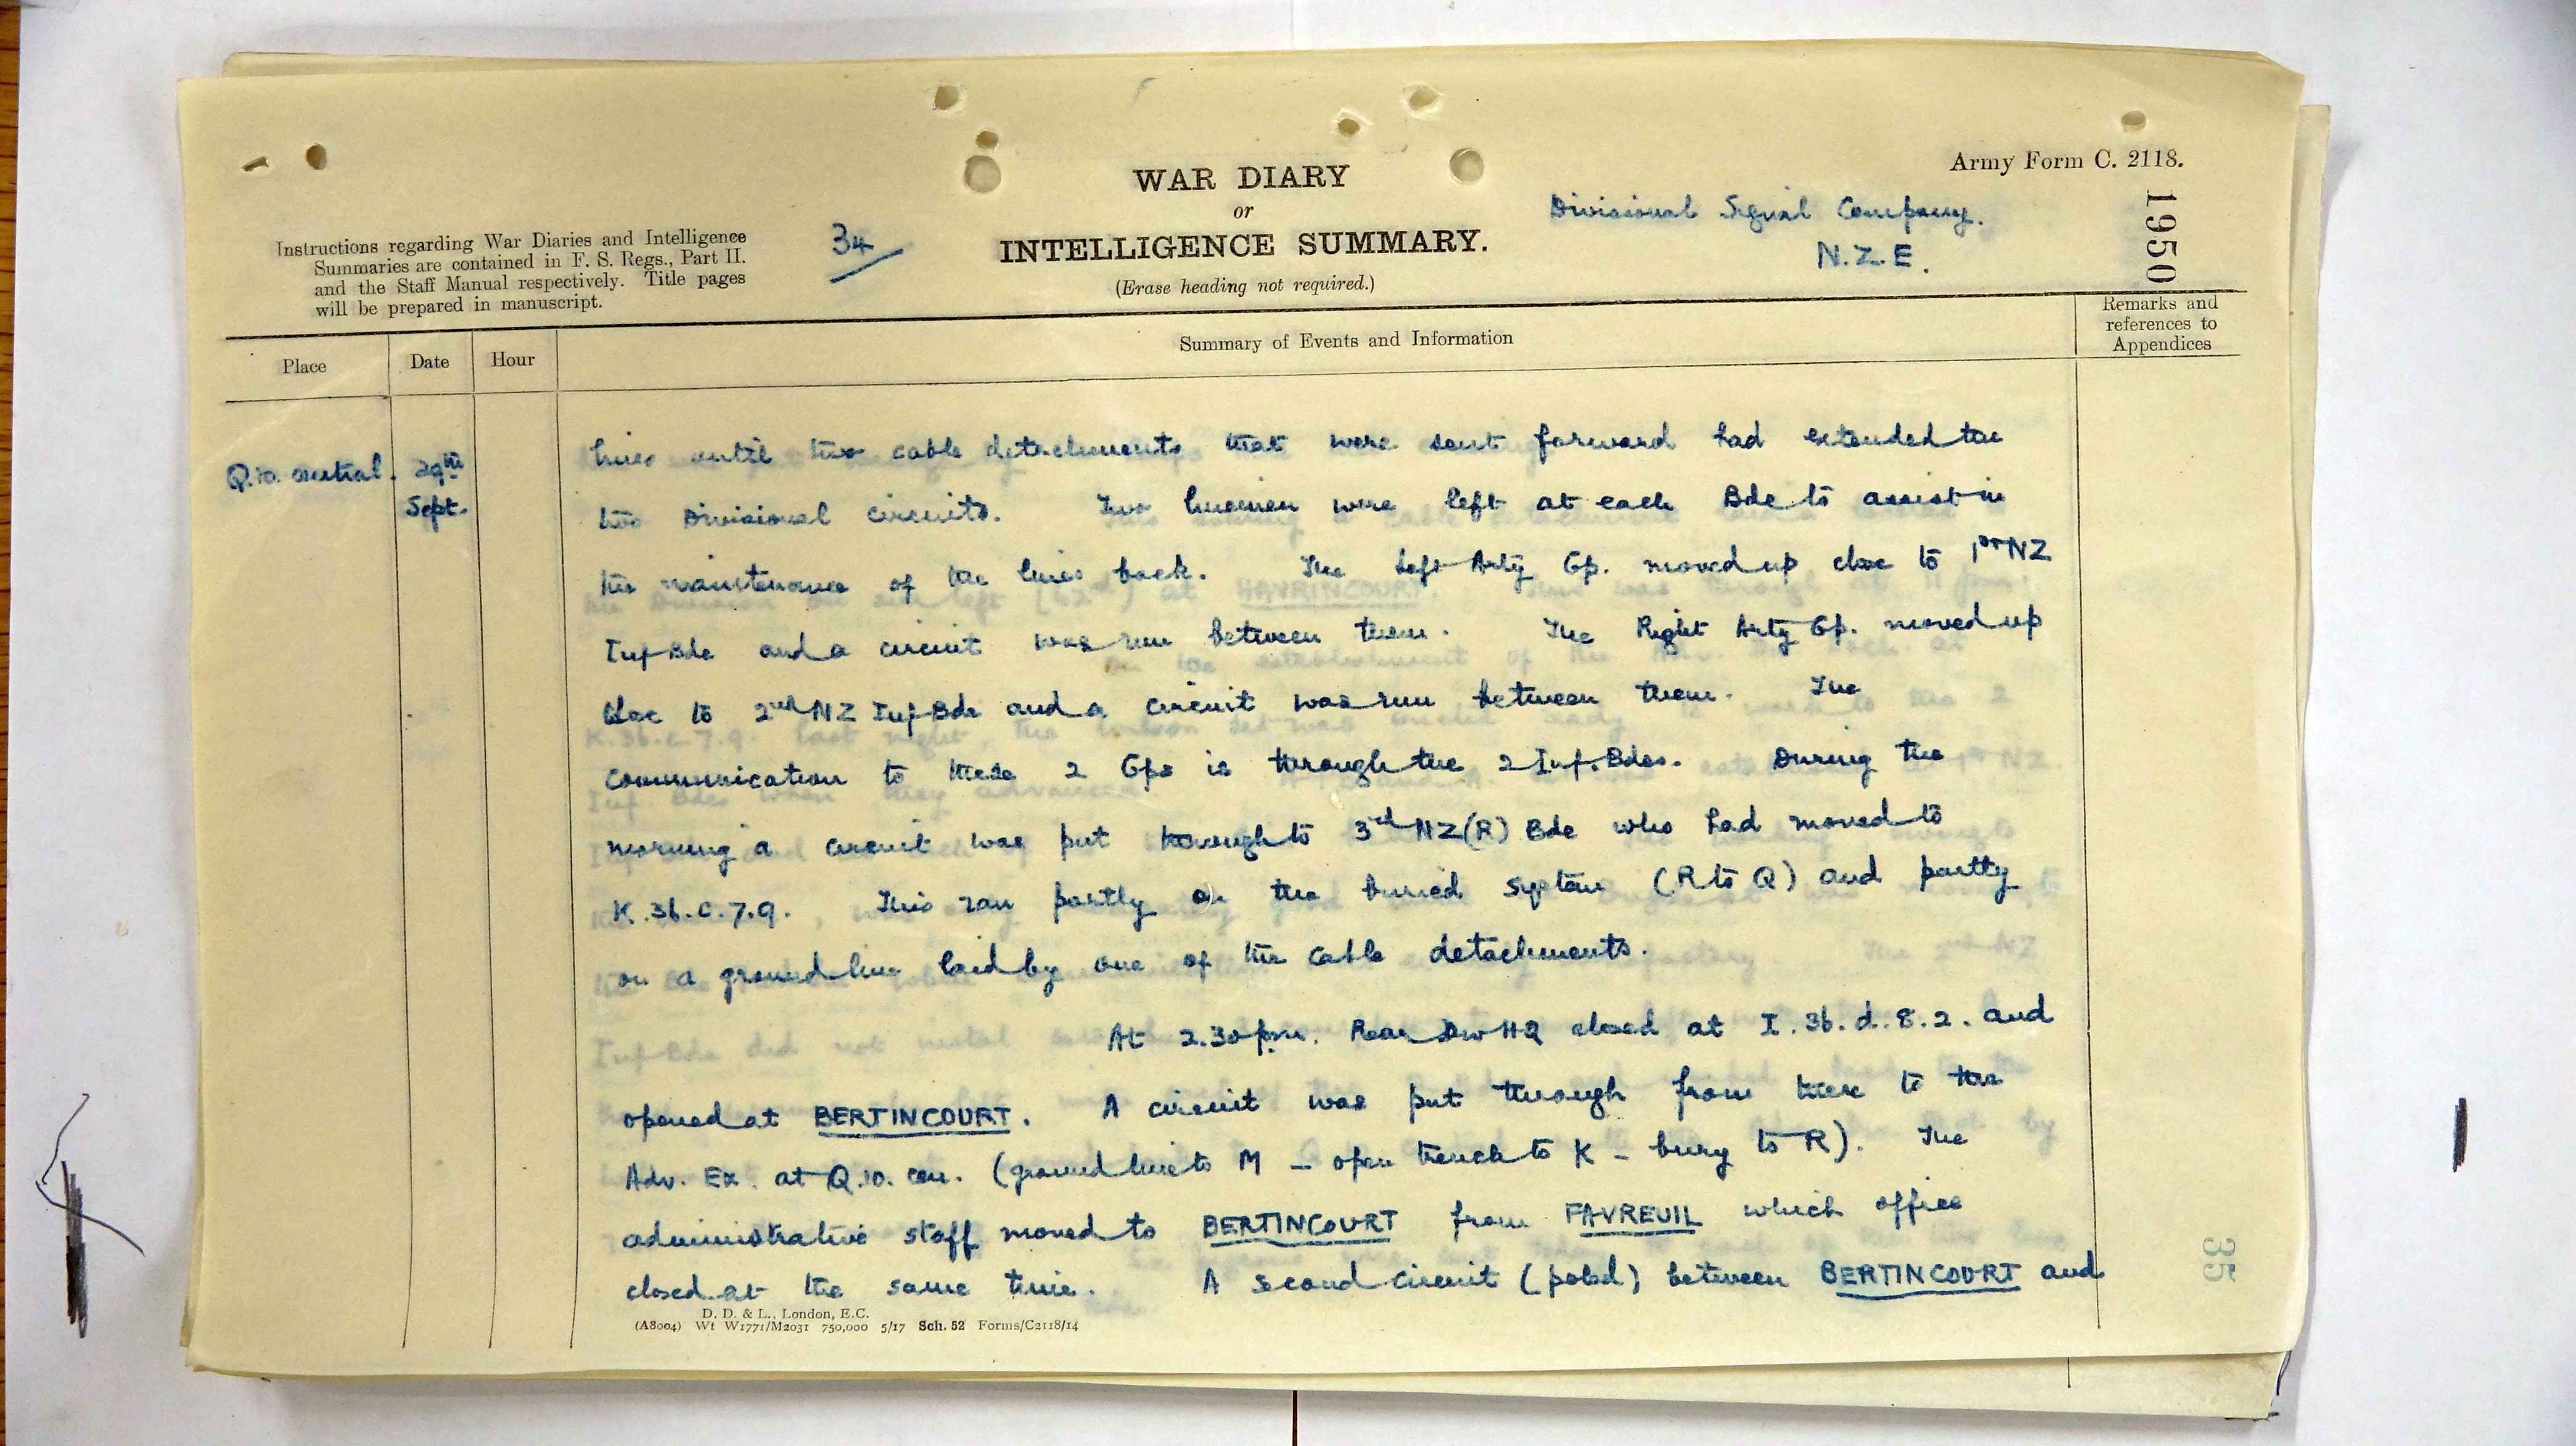 Army Form C. 2118.
1950
WAR DIARY
or
INTELLIGENCE SUMMARY.
(Erase heading not required.)
Instructions regarding War Diaries and Intelligence
Summaries are contained in F. S. Regs., Part II.
and the Staff Manual respectively. Title pages
will be prepared in manuscript.
34
Divisional Signal Company.
N.Z.E.
Place
Date
Hour
Summary of Events and Information
Remarks and
references to
Appendices
Q.10. central.
29th
Sept.
lines until two cable detachments that were sent forward had extended the
two Divisional circuits. Two linemen were left at each Bde to assist in
the maintenance of the lines back. The Left Arty Gp. moved up close to 1st NZ
Inf Bde and a circuit was run between them. The Right Arty Gp. moved up
close to 2nd NZ Inf Bde and a circuit was run between them. The
communication to these 2 Gps is through the 2 Inf. Bdes. During the
morning a circuit was put through to 3rd NZ (R) Bde who had moved to
K.36.c.7.9. This ran partly on the buried system (R to Q) and partly
on a ground line laid by one of the cable detachments.
At 2.30 pm. Rear Div HQ closed at I.36.d.8.2. and
opened at BERTINCOURT. A circuit was put through from there to the
Adv. Ex. at Q.10. cen. (ground line to M – open trench to K – bury to R). The
administrative staff moved to BERTINCOURT from FAVREUIL which office
closed at the same time. A second circuit (poled) between BERTINCOURT and
D. D. & L., London, E.C.
(A8004) Wt W1771/M2031 750,000 5/17 Sch. 52 Forms/C2118/14
35